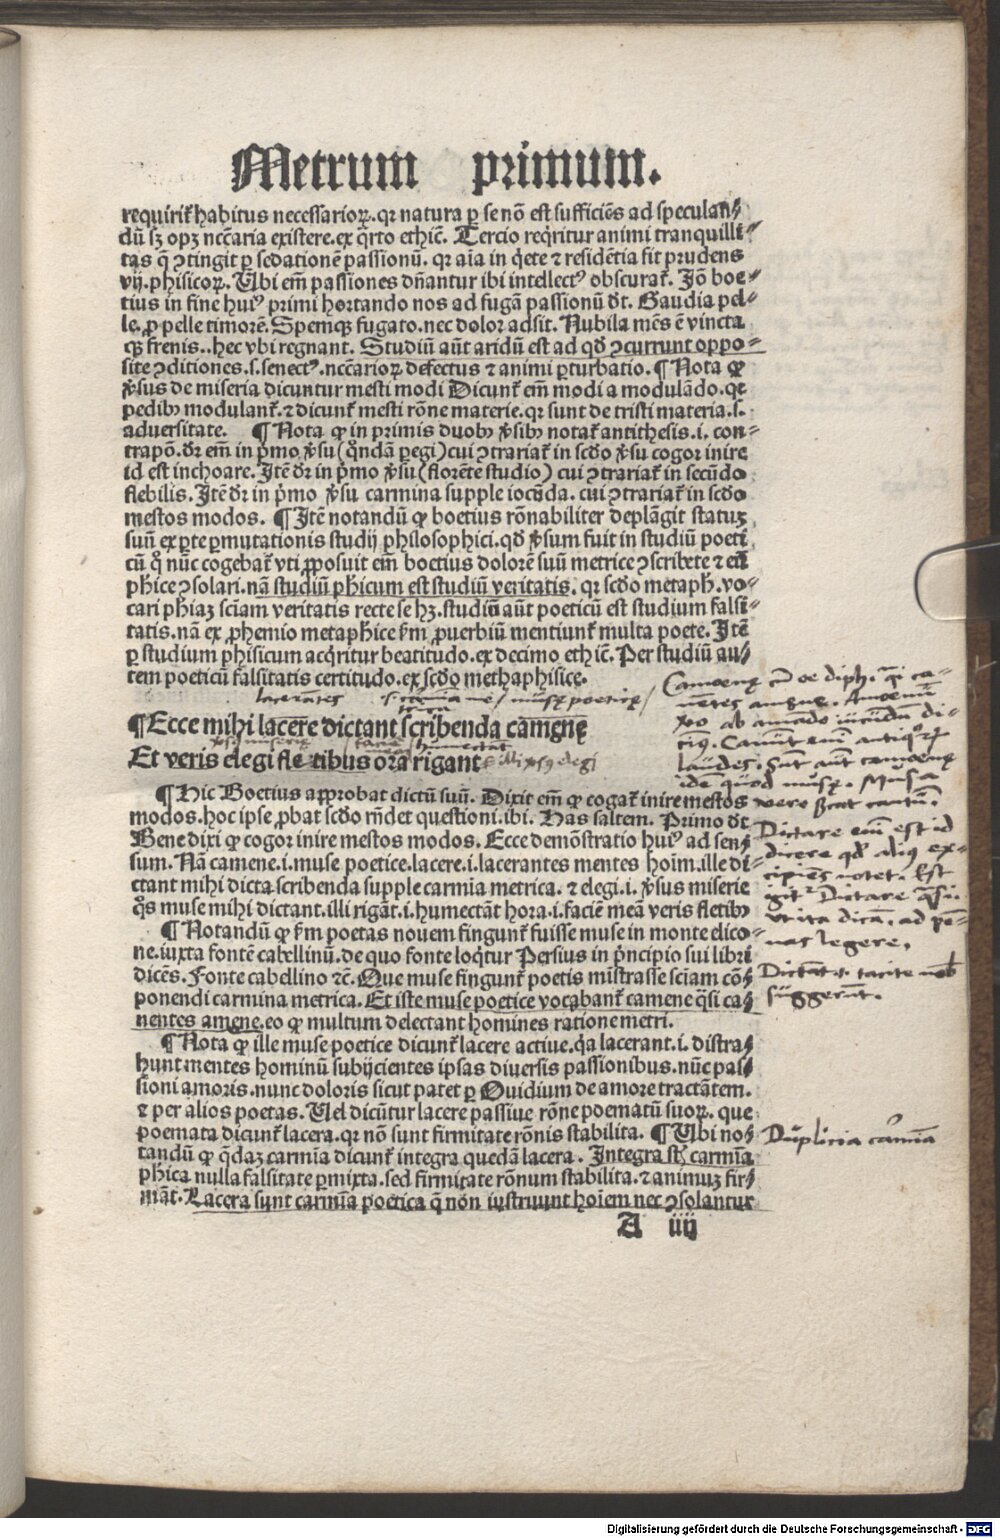 Metrum primum.
requirit᷑ habitus necessarioꝝ. qꝛ natura ꝑ se nō est sufficiēs ad speculan⸗
dū sꝫ opꝫ nccͤaria existere. ex q̈rto ethic̄. Tercio reqͥritur animi tranquilli⸗
tas q̄ ꝯtingit ꝑ sedationē passionū. qꝛ aīa in qͥete ⁊ residētia fit prudens
vij. phisicoꝝ. Ubi em̄ passiones dn̄antur ibi intellectꝰ obscurat᷑. Jō boe⸗
tius in fine huiꝰ primi hortando nos ad fugā passionū dt̄. Gaudia pel⸗
le. ꝓpelle timorē. Spemqꝫ fugato. nec dolor adsit. Nubila mēs ē vincta
qꝫ frenis.. hec vbi regnant. Studiū aūt aridū est ad qd̄ ꝯcurrunt oppo⸗
site ꝯditiones. s. senectꝰ. nccͤarioꝝ defectus ⁊ animi ꝑturbatio. ¶ Nota ꝙ
v̓sus de miseria dicuntur mesti modi Dicunt᷑ em̄ modi a modulādo. qꝛ
pedibꝫ modulant᷑. ⁊ dicunt᷑ mesti rōne materie. qꝛ sunt de tristi materia. s.
aduersitate. ¶ Nota ꝙ in primis duobꝫ v̓sibꝫ notat᷑ antithesis. i. con⸗
trapō. dr̄ em̄ in pͥmo v̓su (qͦndā ꝑegi) cui ꝯtrariat᷑ in scd̄o v̓su cogor inire
id est inchoare. Jtē dr̄ in pͥmo v̓su (florēte studio) cui ꝯtrariat᷑ in secūdo
flebilis. Jtē dr̄ in pͥmo v̓su carmina supple iocūda. cui ꝯtrariat᷑ in scd̄o
mestos modos. ¶ Jtē notandū ꝙ boetius rōnabiliter deplāgit statuꝫ
suū ex ꝑte ꝑmutationis studij philosophici. qd̄ v̓sum fuit in studiū poeti
cū qͦ nūc cogebat᷑ vti ꝓposuit em̄ boetius dolorē suū metrice ꝯscribere ⁊ eū
phice ꝯsolari. nā studiū phicum est studiū veritatis. qꝛ scd̄o metaph. vo⸗
cari phiaꝫ sciam veritatis recte se hꝫ. studiū aūt poeticū est studium falsi⸗
tatis. nā ex ꝓhemio metaphice ẜm ꝓuerbiū mentiunt᷑ multa poete. Jtē
ꝑ studium phisicum acqͥritur beatitudo. ex decimo ethic̄. Per studiū au⸗
tem poeticū falsitatis certitudo. ex scd̄o methaphisicę.
lacerātes s. carmina me / musę poeticę /
¶ Ecce mihi lacere dictant scribenda camenę
Et veris elegi fletibus ora rigant
¶ Hic Boetius approbat dictū suū. Dixit em̄ ꝙ cogat᷑ inire mestos
modos. hoc ipse ꝓbat scd̄o rn̄det questioni. ibi. Has saltem. Primo dt̄
Bene dixi ꝙ cogor inire mestos modos. Ecce demōstratio huiꝰ ad sen⸗
sum. Nā camene. i. muse poetice. lacere. i. lacerantes mentes hoīm. ille di⸗
ctant mihi dicta scribenda supple carmīa metrica. ⁊ elegi. i. v̓sus miserie
qͦs muse mihi dictant. illi rigāt. i. humectāt hora. i. faciē meā veris fletibꝫ
¶ Notandū ꝙ ẜm poetas nouem fingunt᷑ fuisse muse in monte elico⸗
ne. iuxta fontē cabellinū. de quo fonte loqͥtur Persius in pͥncipio sui libri
dicēs. Fonte cabellino ⁊c̄. Que muse fingunt᷑ poetis mīstrasse sciam cō⸗
ponendi carmina metrica. Et iste muse poetice vocabant᷑ camene qͣsi ca⸗
nentes amene. eo ꝙ multum delectant homines ratione metri.
¶ Nota ꝙ ille muse poetice dicunt᷑ lacere actiue. qͥa lacerant. i. distra⸗
hunt mentes hominū subijcientes ipsas diuersis passionibus. nūc pas⸗
sioni amoris. nunc doloris sicut patet ꝑ Ouidium de amore tractātem.
⁊ per alios poetas. Uel dicūtur lacere passiue rōne poematū suoꝝ. que
poemata dicunt᷑ lacera. qꝛ nō sunt firmitate rōnis stabilita. ¶ Ubi no⸗
tandū ꝙ qͣdaꝫ carmīa dicunt᷑ integra quedā lacera. Integra st̄ carmīa
phica nulla falsitate ꝑmixta. sed firmitate rōnum stabilita. ⁊ animuꝫ fir⸗
māt. Lacera sunt carmīa poetica q̄ non iustruunt hoīem nec ꝯsolantur
A iiij
Camoenę cū oe diph. qͣsi ca⸗
nentes amęne.
laudes. sunt aūt camoenę
idē quod musę. Musa
Dictare em̄ est id
dicere qd̄ alius ex⸗
cipiens notet. Est
Dictāt. i. tacite mihi
suggerūt.
Duplicia carmīa
Digitalisierung gefördert durch die Deutsche Forschungsgemeinschaft - DFG